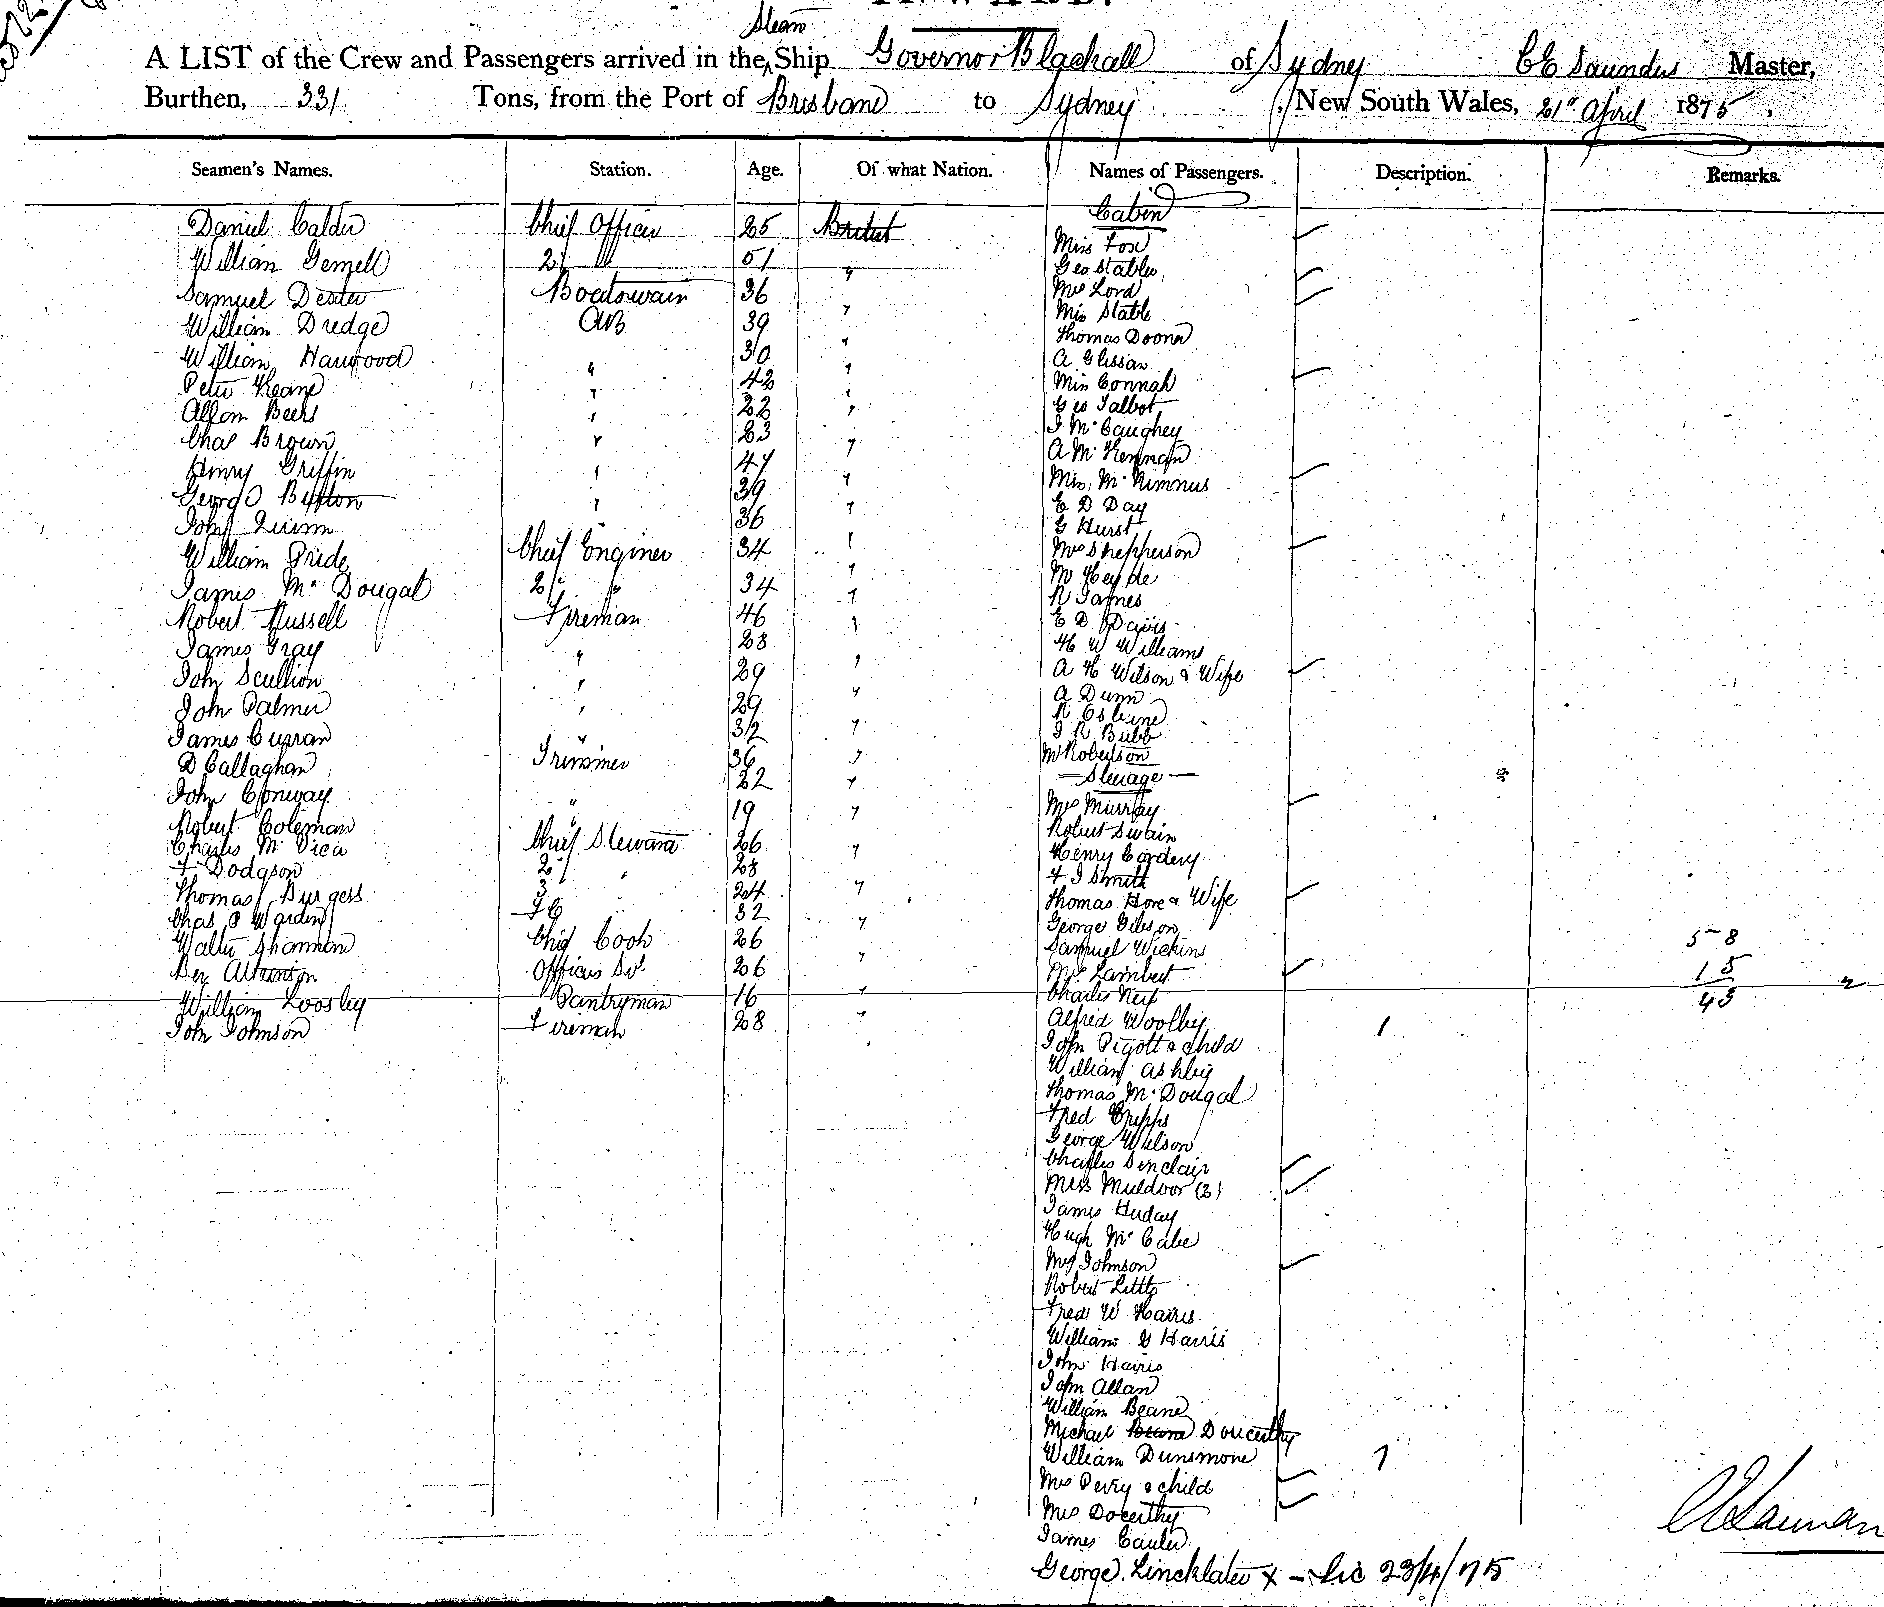 Steam
A LIST of the Crew and Passengers arrived in the Ship Governor Blackall of Sydney C E Saunders Master,
Burthen, 331 Tons, from the Port of Brisbane to Sydney New South Wales, 21st April 1875.
Seamen's Names. Station. Age. Of what Nation. Names of Passengers. Description. Remarks.
Daniel Calder Chief Officer 25 British
William Gemell 2 " 51 "
Samuel Dexter Boatswain 36 "
William Dredge AB 39 "
William Harwood " 30 "
Peter Keane " 42 "
Beers " 22 "
Chas Brown " 23 "
Henry Griffin " 47 "
George Buxton " 39 "
John Quinn " 36 "
William Pride Chief Enginer 34 "
James Mc Dougal 2 " 34 "
Robert Russell Fireman 46 "
James Gray " 28 "
John Scullion " 29 "
John Palmer " 29 "
James Curran " 32 "
D Callaghan Trimmer 36 "
John Conway " 22 "
Robert Coleman " 19 "
Charles Mc Vica Chief Steward 26 "
F Dodgson 2 " 28
Thomas Burgess 3 " 24 "
Chas Warden 32
Walter Shannon Chief Cook 26 "
Ben Atkinson Officers Svt 26 "
William Loosley Pantryman 16 "
John Johnson Fireman 28 "
Cabin
Miss Fox
Geo Stables
Mrs Lord
Miss Stable
Thomas Doona
A Glissan
Miss Connah
Geo Talbot
J McCaughey
A McKennan
Miss McNimnus
E D Day
G Hurst
Mrs Shepperson
M Heyde
R James
E D Davis
H W Williams
A H Wilson & Wife
A Dunn
R Osborne
J R Bubb
Mr Robertson
Steerage
Mrs Murray
Robert Swain
Henry Cordery
F J Smith
Thomas Hore & Wife
George Gibson
Samuel Wickins
Mrs Lambert
Charles Neep
Alfred Woolley 1
John Pigott & child
William Ashley
Thomas McDougal
Fred Cripps
George Wilson
Charles Sinclair
Miss Muldoor (2)
James Huday
Hugh McCabe
Mrs Johnson
Robert Little
Fred W Harris
William G Harris
John Harris
John Allan
William Beane
Michael Beane Doucerthy
William Dunsmore 1
Mrs Perry & child
Mrs Docerthy
James Cauler
George Lincklater x - Lic 23/4/75
5-8
15
43